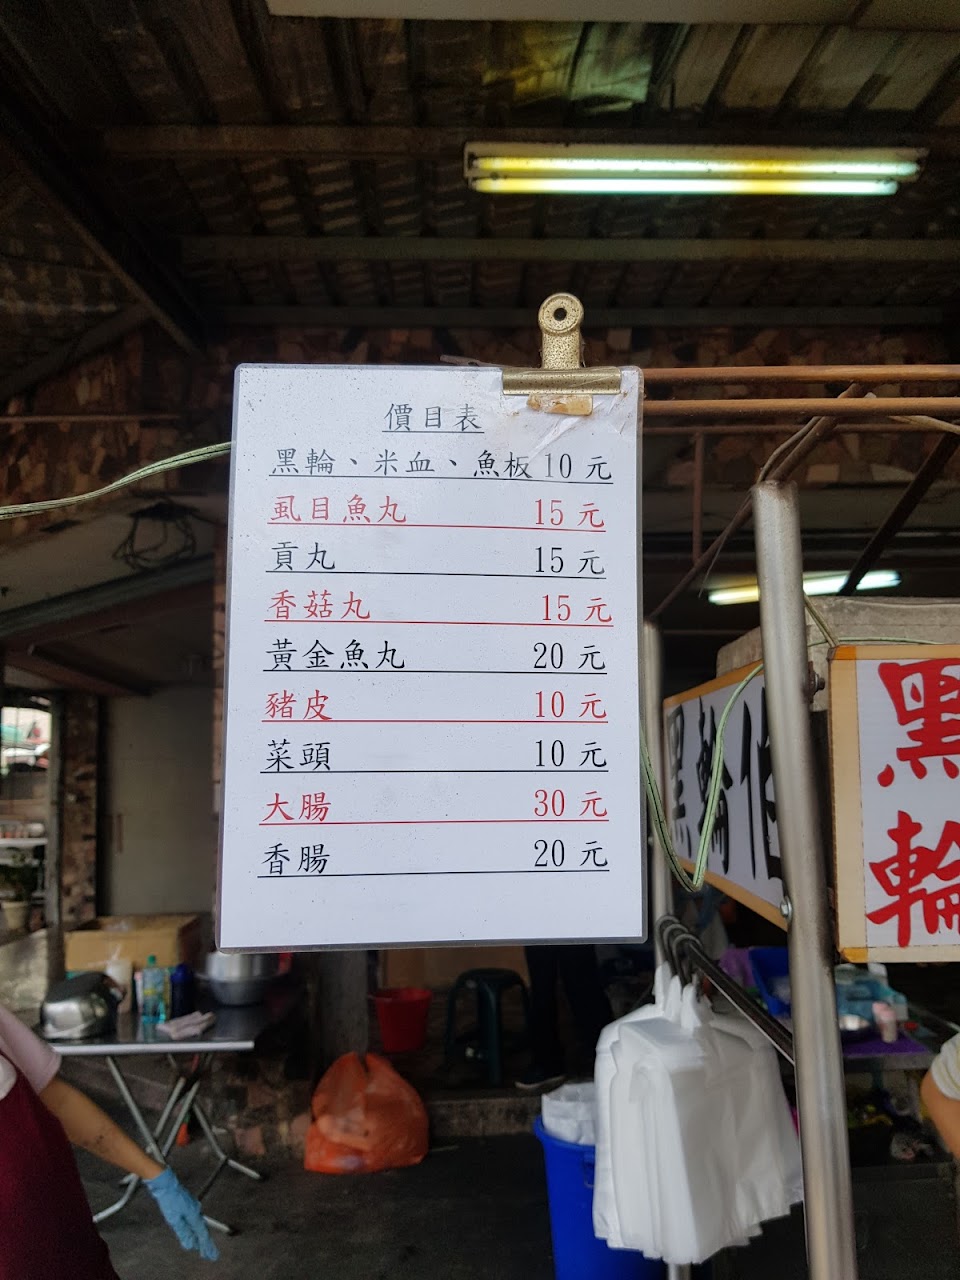 價目表
黑輪、米血、魚板10元
虱目魚丸 15元
貢丸 15元
香菇丸 15元
黃金魚丸 20元
豬皮 10元
菜頭 10元
大腸 30元
香腸 20元
黑輪伯
黑輪